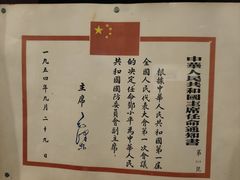 中華人民共和國主席任命通知書
第一號
根據中華人民共和國第一屆
全國人民代表大會第一次會議
的決定任命鄧小平為中華人民
共和國國防委員會副主席
主席 毛澤東
一九五四年九月二十九日